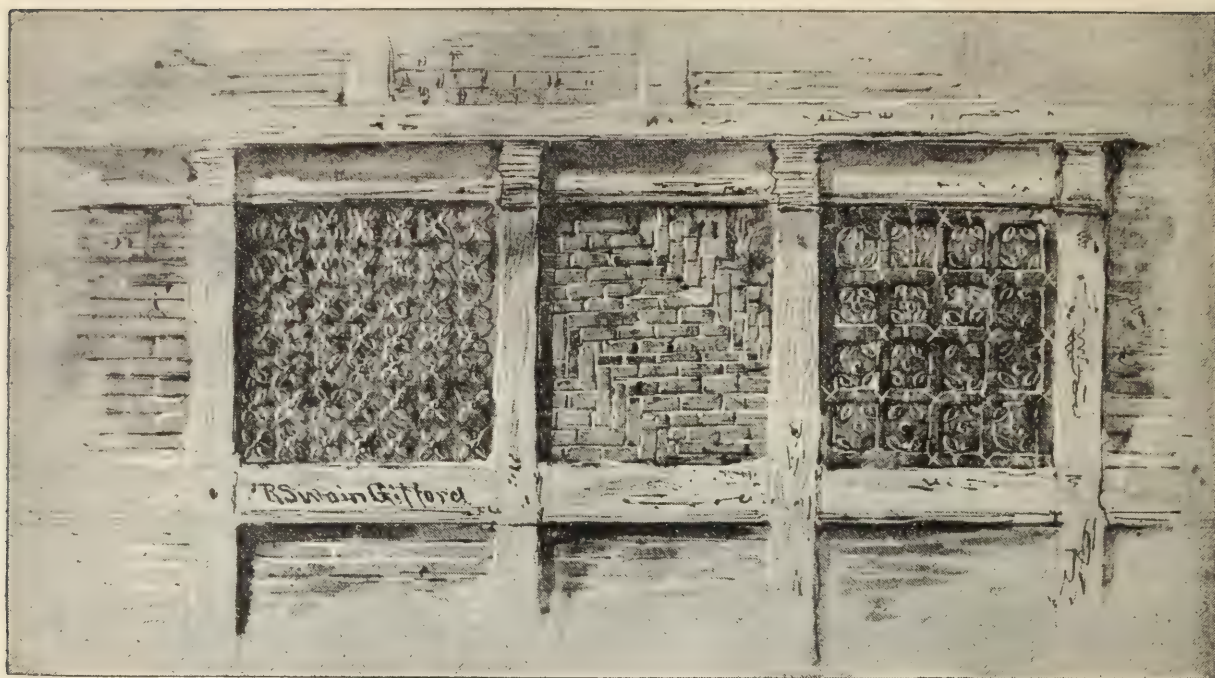 R Swain Gifford